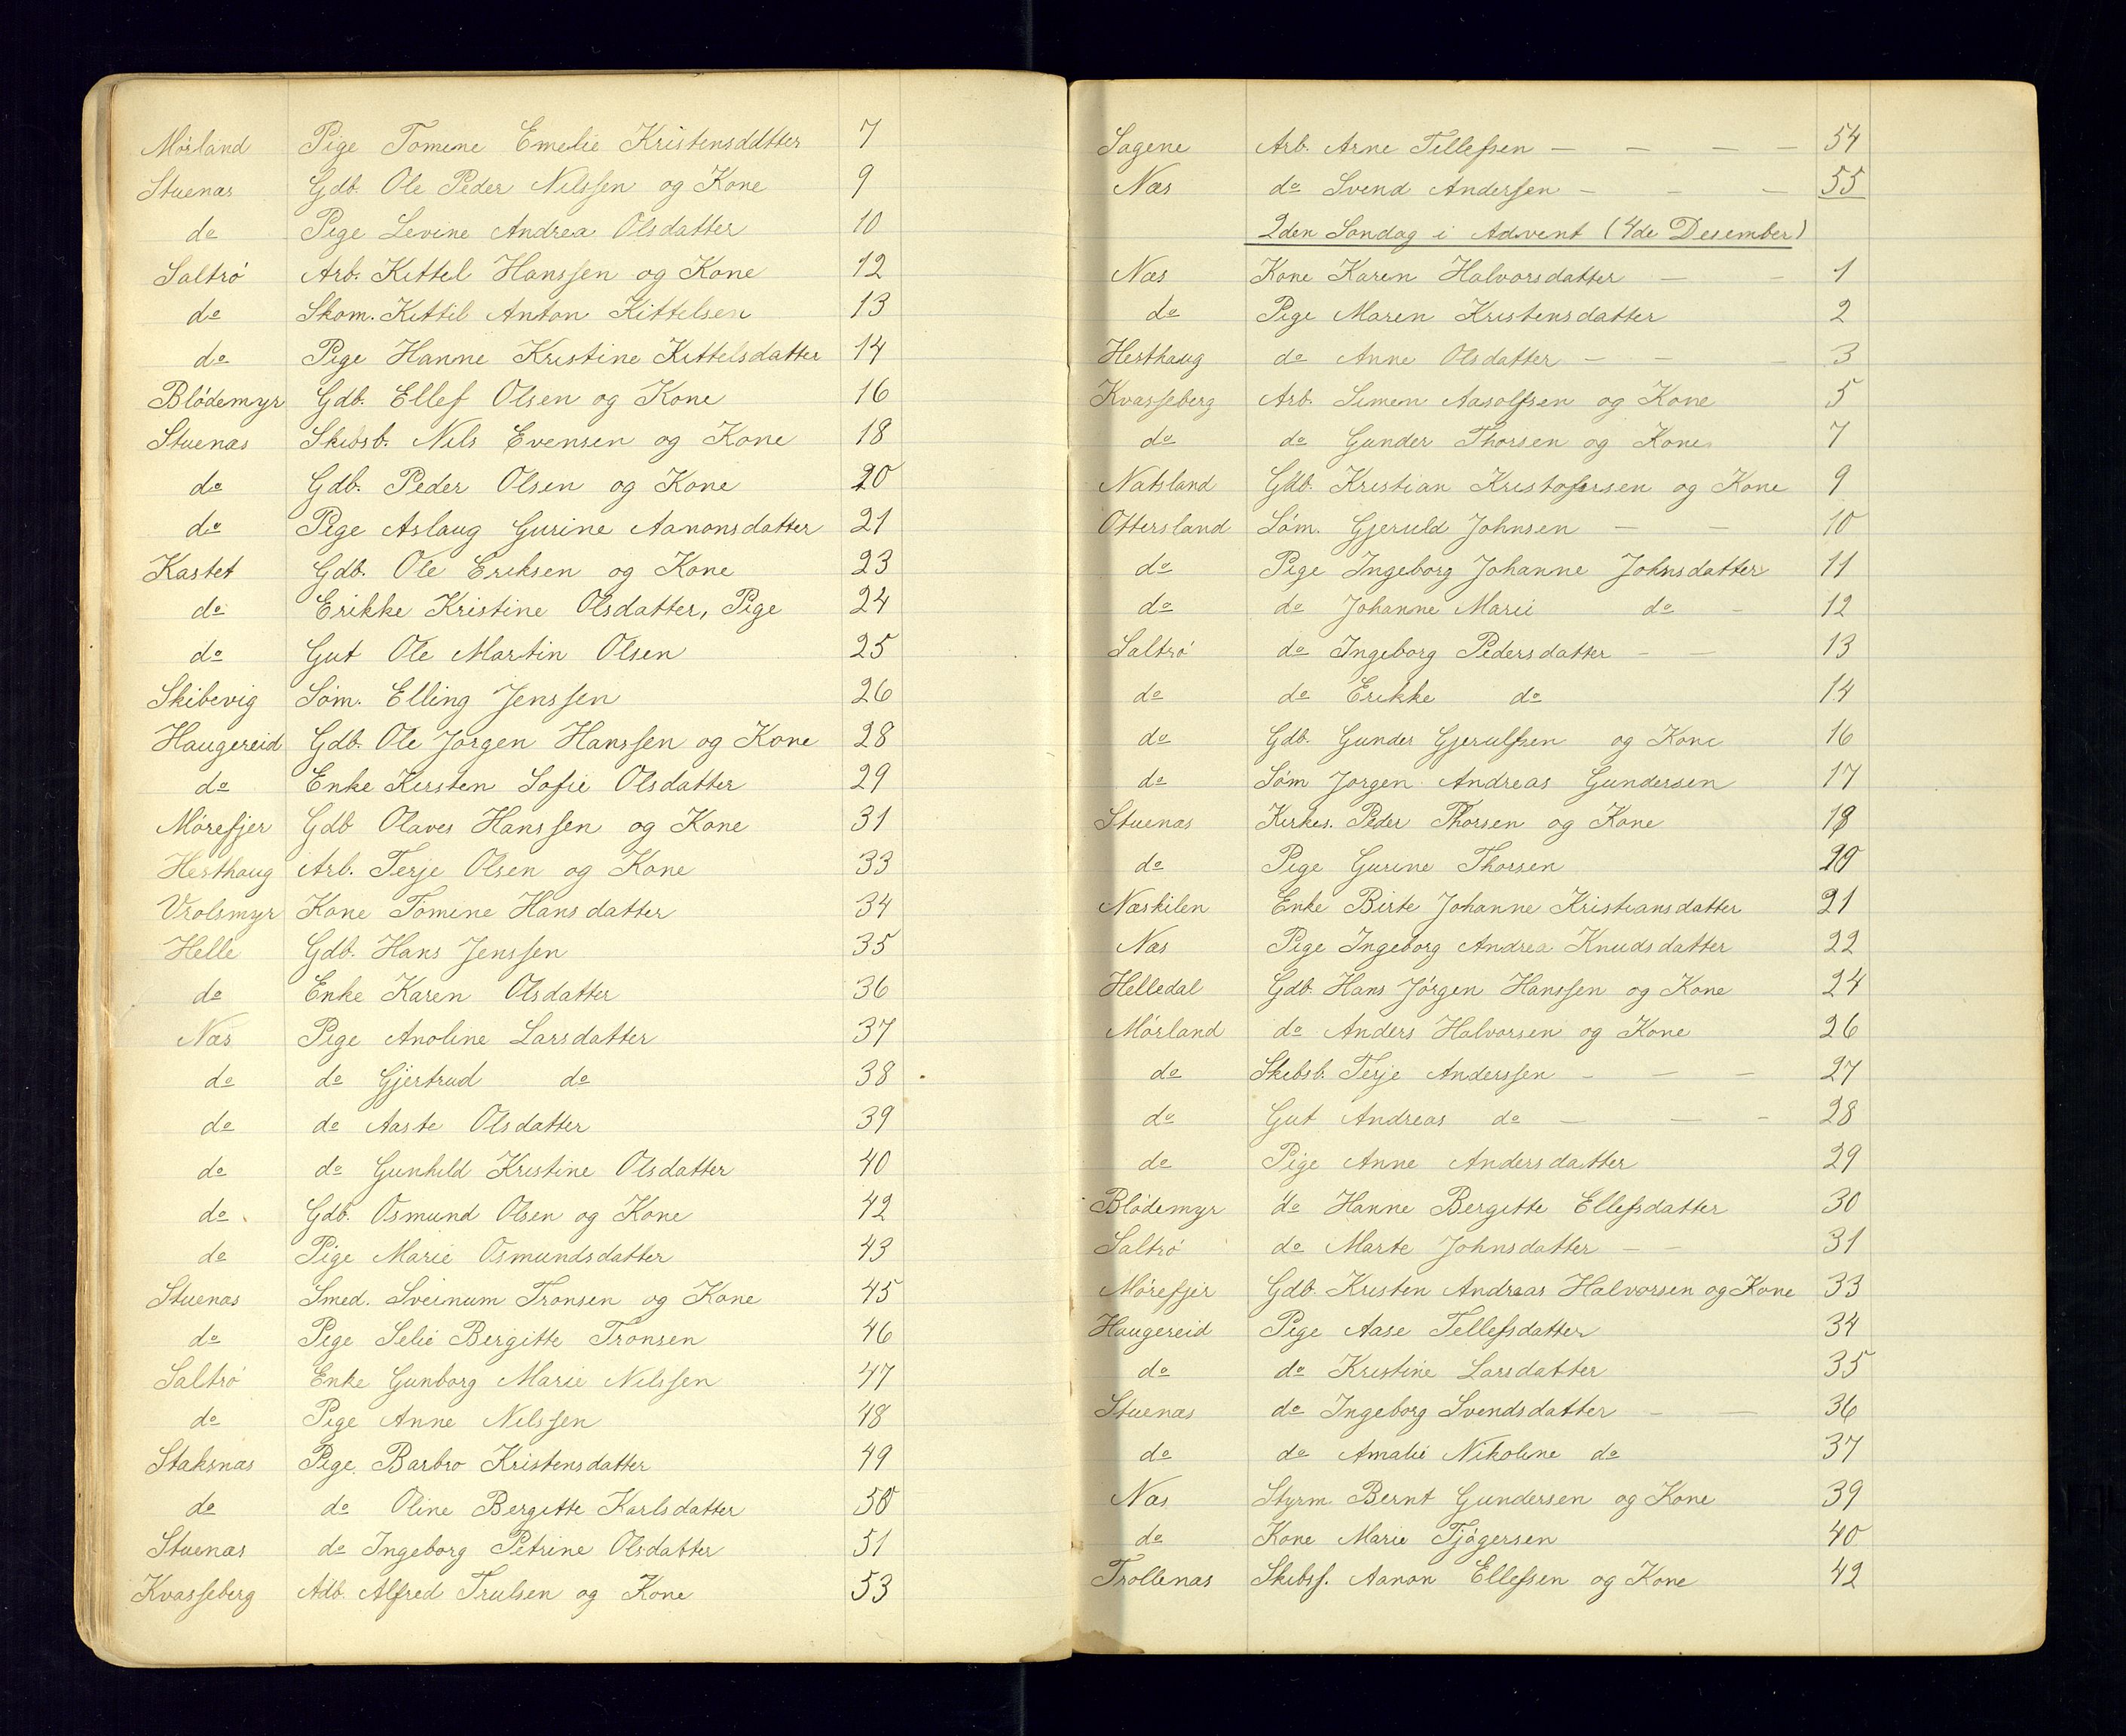 Mørland Pige Tomine Emelie Kristensddtter 7
Stuenæs Gdb. Ole Peder Nilssen og Kone 9
do Pige Levine Andrea Olsdatter 10
Saltrø Arb. Kittel Hanssen og Kone 12
do Skom. Kittil Anton Kittelsen 13
do Pige Hanne Kristine Kittelsdatter 14
Blødemyr Gdb. Ellef Olsen og Kone 16
Stuenæs Skibsb. Nils Evensen og Kone 18
do Gdb. Peder Olsen og Kone 20
do Pige Aslaug Gurine Aanonsdatter 21
Kastet Gdb. Ole Eriksen og Kone 23
do Erikke Kristine Olsdatter, Pige 24
do Gut Ole Martin Olsen 25
Skibevig Søm. Elling Jenssen 26
Haugereid Gdb. Ole Jørgen Hanssen og Kone 28
do Enke Kirsten Sofie Olsdatter 29
Mørefjer Gdb Olaves Hanssen og Kone 31
Hesthaug Arb. Terje Olsen og Kone 33
Vrolsmyr Kone Tomine Hansdatter 34
Helle Gdb. Hans Jenssen 35
do Enke Karen Olsdatter 36
Næs Pige Anoline Larsdatter 37
do do Gjertrud do 38
do do Aaste Olsdatter 39
do do Gunhild Kristine Olsdatter 40
do Gdb. Osmund Olsen og Kone 42
do Pige Marie Osmundsdatter 43
Stuenæs Smed. Sveinum Tronsen og Kone 45
do Pige Selie Bergitte Tronsen 46
Saltrø Enke Gunborg Marie Nilssen 47
do Pige Anne Nilssen 48
Staksnæs Pige Barbro Kristensdatter 49
do do Oline Bergitte Karlsdatter 50
Stuenæs do Ingeborg Petrine Olsdatter 51
Kvasseberg Adb. Alfred Trulsen og Kone 53
Sagene Arb. Arne Tellefsen — — — — 54
Næs do Svend Anderssen — — — 55
2den Søndag i Advent (4de Desember)
Næs Kone Karen Halvorsdatter — — 1
do Pige Maren Kristensdatter 2
Hesthaug do Anne Olsdatter — — — 3
Kvasseberg Arb. Simen Aasolfsen og Kone 5
do do Gunder Thorsen og Kone 7
Natsland Gdb. Kristian Kristofersen og Kone 9
Ottersland Søm. Gjeruld Johnsen — — 10
do Pige Ingeborg Johanne Johnsdatter 11
do do Johanne Marie do - 12
Saltrø do Ingeborg Pedersdatter - — 13
do do Erikke do 14
do Gdb. Gunder Gjerulfsen og Kone 16
do Søm Jørgen Andreas Gundersen 17
Stuenæs Kirkes. Peder Thorsen og Kone 19
do Pige Gurine Thorsen 20
Næskilen Enke Birte Johanne Kristiansdatter 21
Næs Pige Ingeborg Andrea Knudsdatter 22
Helledal Gdb. Hans Jørgen Hanssen og Kone 24
Mørland do Anders Halvorsen og Kone 26
do Skibsb. Terje Anderssen - — — 27
do Gut Andreas do — — - 28
do Pige Anne Andersdatter 29
Blødemyr do Hanne Bergitte Ellefsdatter 30
Saltrø do Marte Johnsdatter — — 31
Mørefjer Gdb. Kristen Andreas Halvorsen og Kone 33
Haugereid Pige Aase Tellefsdatter 34
do do Kristine Larsdatter 35
Stuenæs do Ingeborg Svendsdatter — — 36
do do Amalie Nikoline do 37
Næs Styrm Bernt Gundersen og Kone 39
do Kone Marie Tjøgersen 40
Trollenæs Skibsf. Aanon Ellefsen og Kone 42